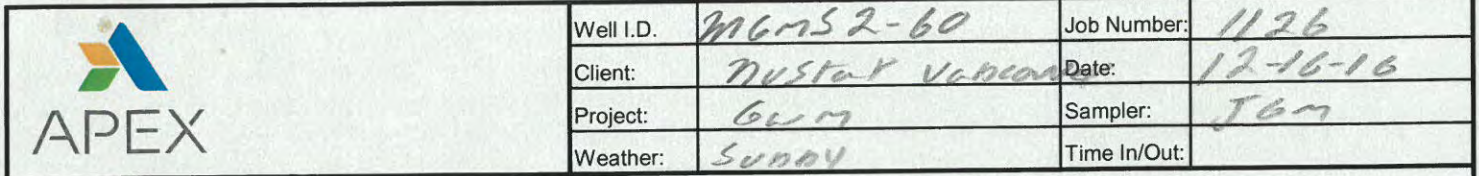 Well I.D. MGMS2-60 Job Number: 1126
Client: NuStar Vancouver Date: 12-16-16
APEX
Project: GWM Sampler: JGM
Weather: Sunny Time In/Out: